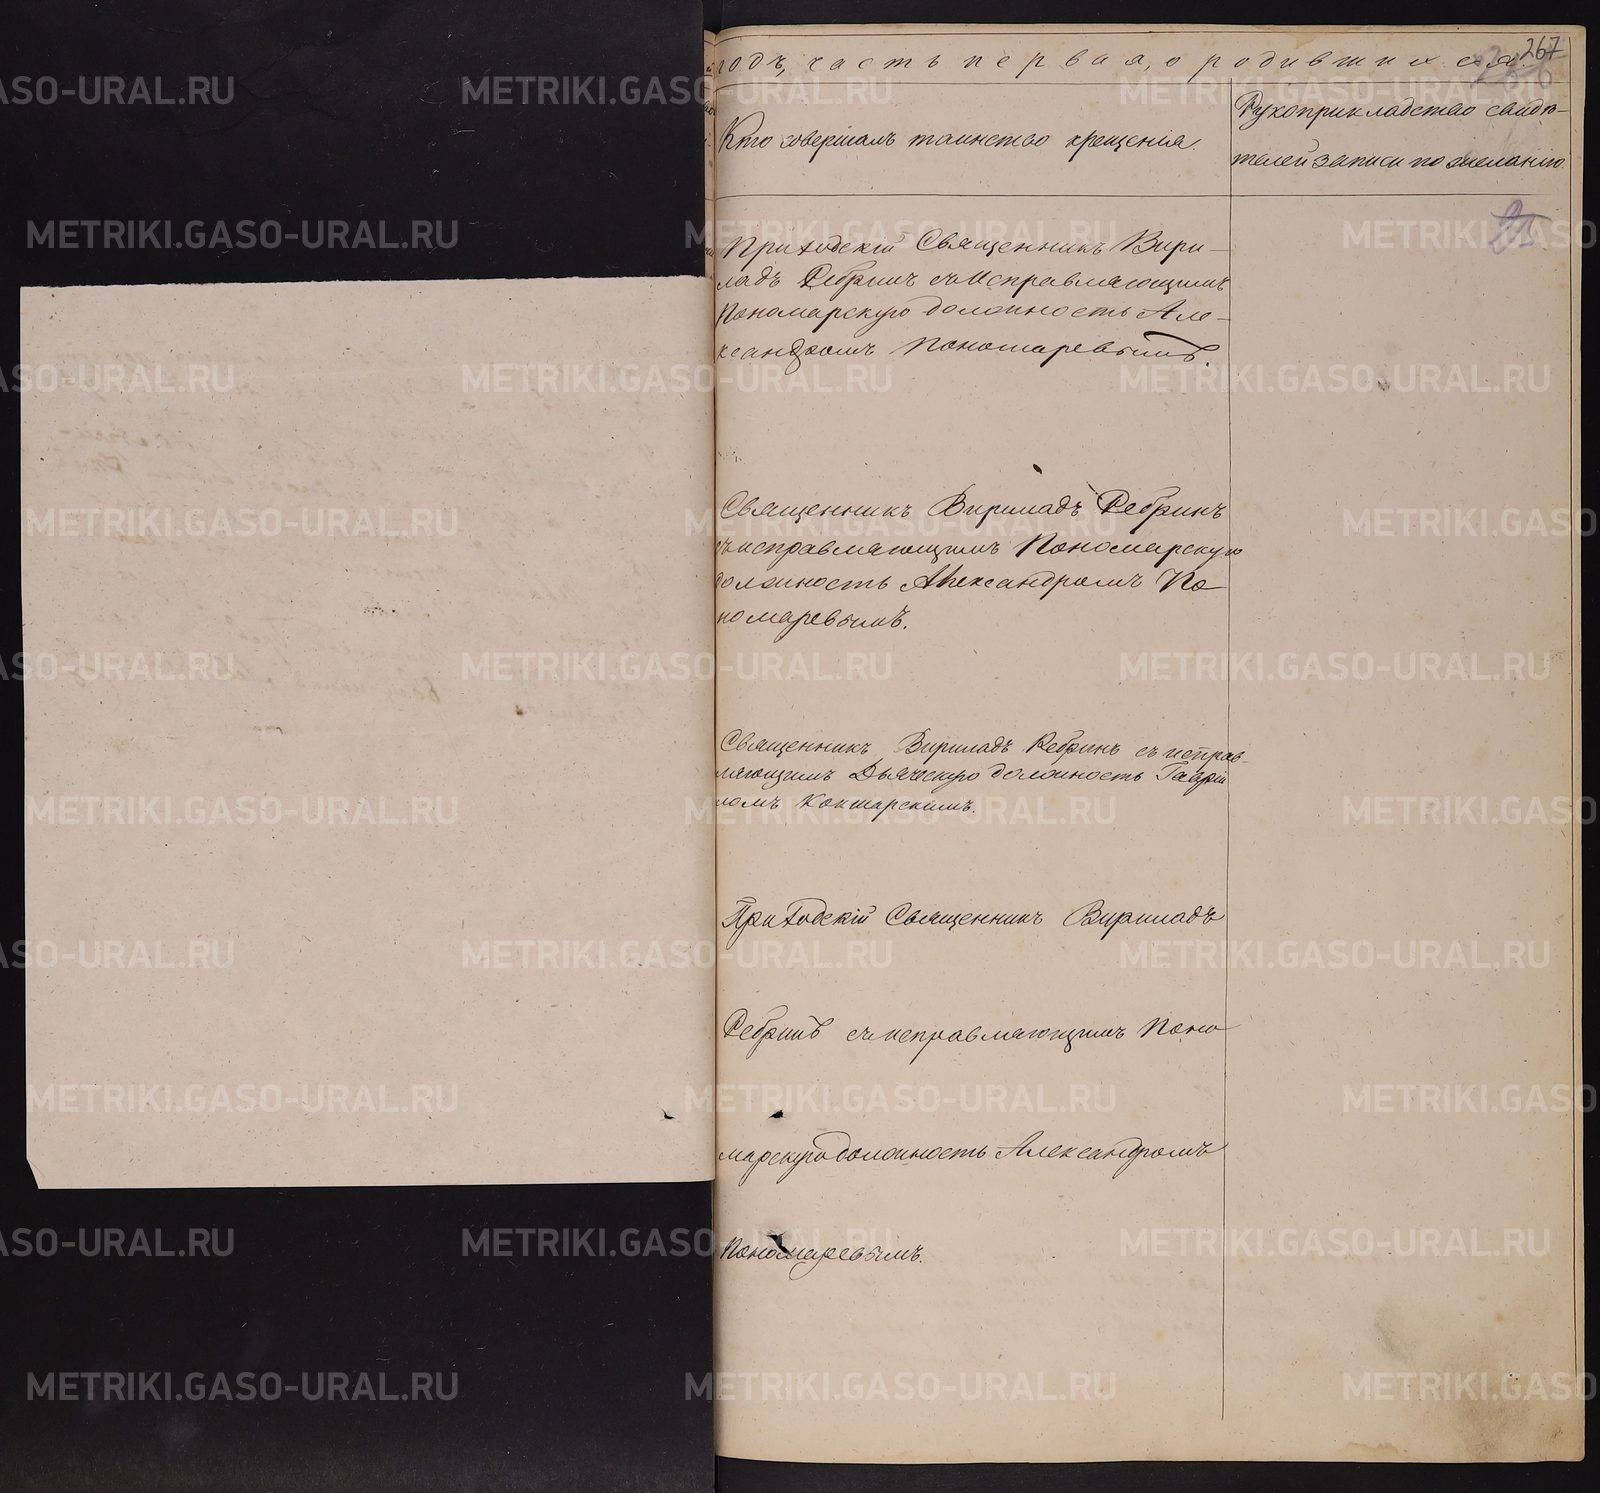 годъ, часть первая, о родившихся.
267
Кто совершалъ таинство крещенія.
Рукоприкладство свидѣ-
телей записи по желанію.
Приходскій Священникъ Вири-
ладъ Ребринъ съ исправляющимъ
Пономарскую должность Але-
ксандромъ Пономаревымъ.
Священникъ Вириладъ Ребринъ
съ исправляющимъ Пономарскую
должность Александромъ По-
номаревымъ.
Священникъ Вириладъ Ребринъ съ исправ-
ляющимъ Дьяческую должность Гаври
ломъ Кокшарскимъ.
Приходскій Священникъ Вириладъ
Ребринъ съ исправляющимъ Поно
марскую должность Александромъ
Пономаревымъ.
METRIKI.GASO-URAL.RU